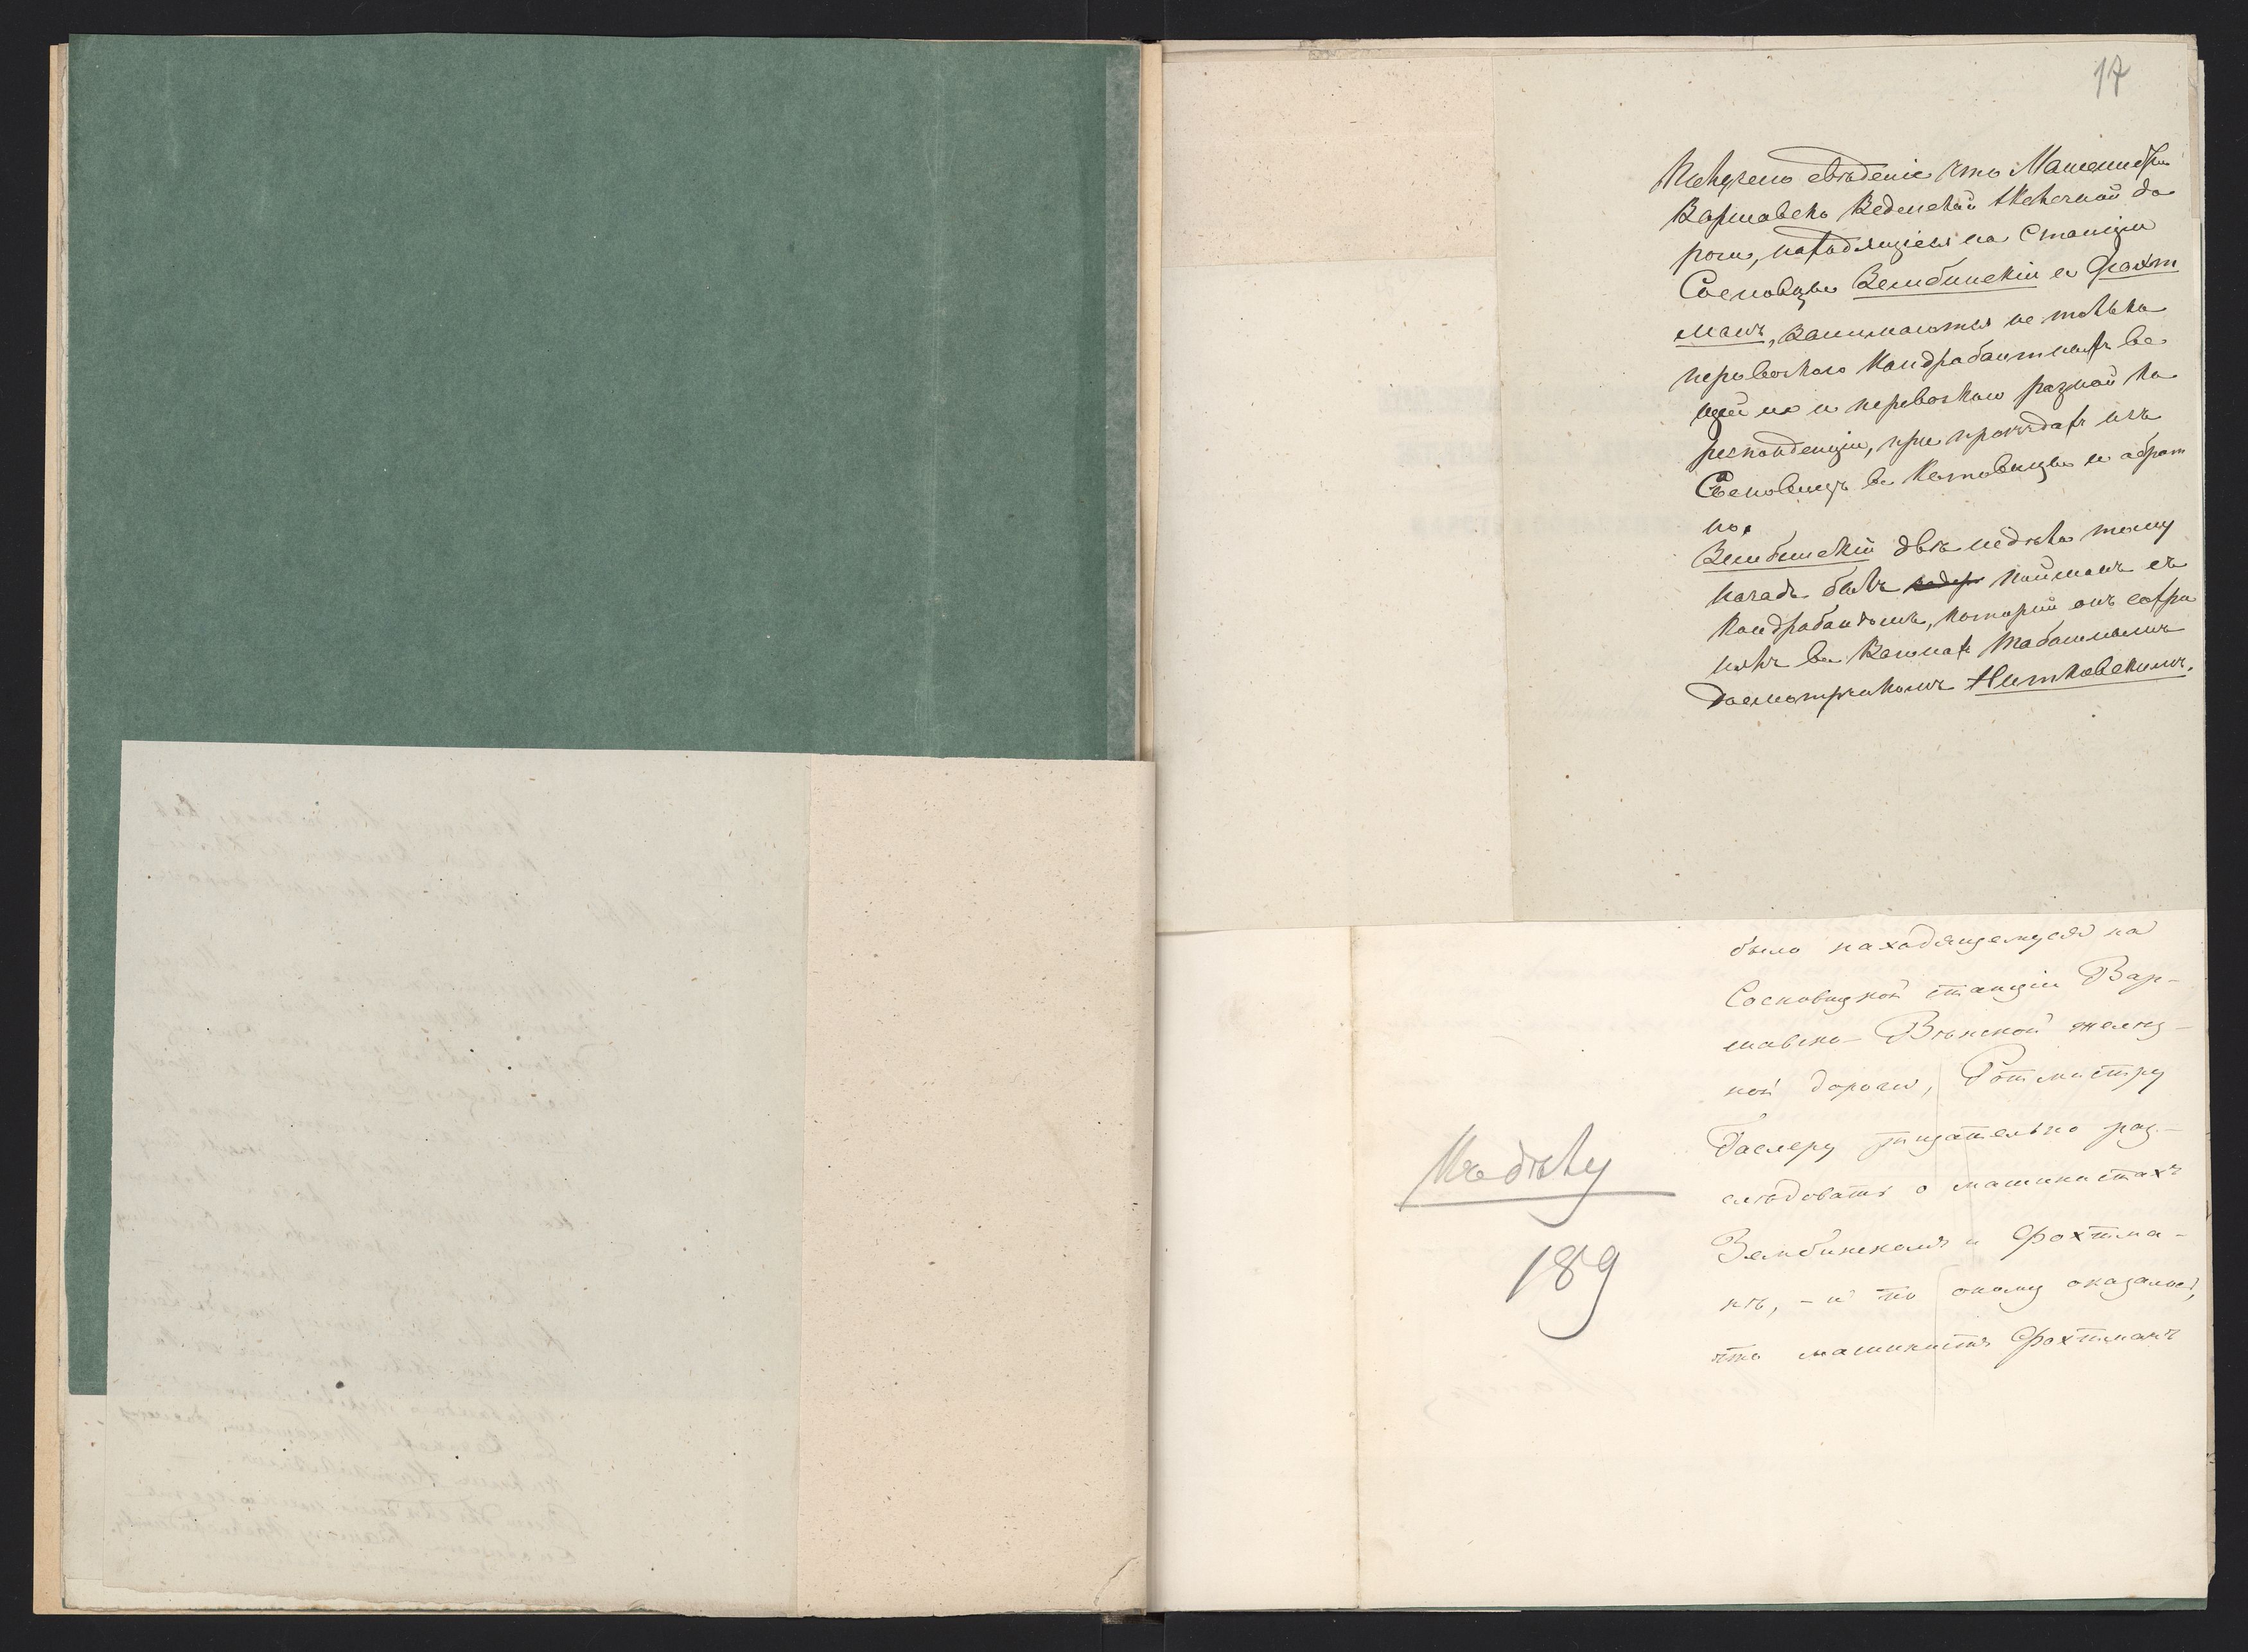 17
Получено сведеніе что Машинисты
Варшавско Веденской Железной до
роги, находящіеся на Станціи
Сосновцы Зембинскій и Фохт
манъ, занимаются не только
перевозкою кондрабантныхъ ве
щей но и перевозкою разной ко
респонденціи, при проездахъ изъ
Сосновицъ въ Катовицы и обрат
но.
Зембинскій две недели тому
назадъ былъ пойманъ съ
кондрабандомъ, который онъ сохра
нялъ въ
досмотрщикомъ Нитковскимъ.
было находящемуся на
Сосновицкой станціи Вар-
шавско-Вѣнской желѣз-
ной дороги, Ротмистру
Гаслеру тщательно раз-
слѣдовать о машинистахъ
Зембинскомъ и Фохтма-
нѣ, - и по оному оказалось,
что машинистъ Фохтманъ
Къ дѣлу
189